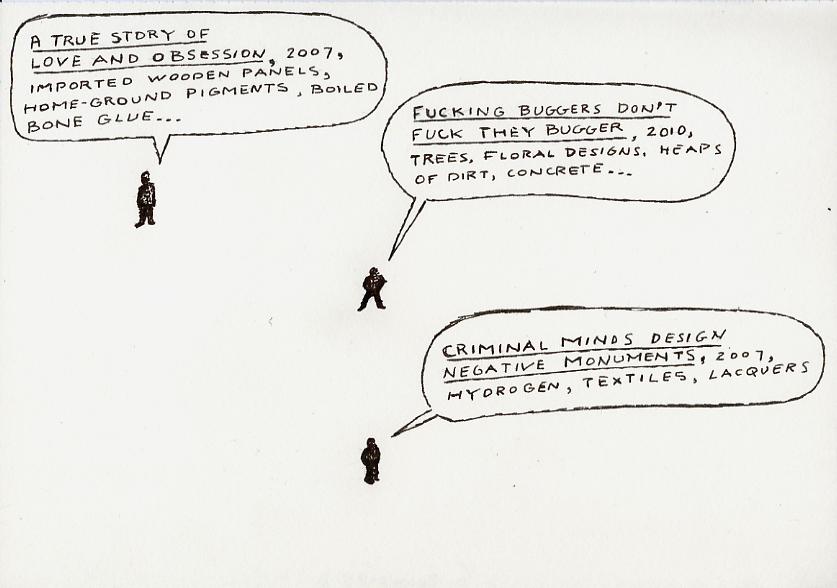 A TRUE STORY OF
LOVE AND OBSESSION, 2007,
IMPORTED WOODEN PANELS,
HOME-GROUND PIGMENTS, BOILED
BONE GLUE...
FUCKING BUGGERS DON'T
FUCK THEY BUGGER, 2010,
TREES, FLORAL DESIGNS, HEAPS
OF DIRT, CONCRETE...
CRIMINAL MINDS DESIGN
NEGATIVE MONUMENTS, 2007,
HYDROGEN, TEXTILES, LACQUERS